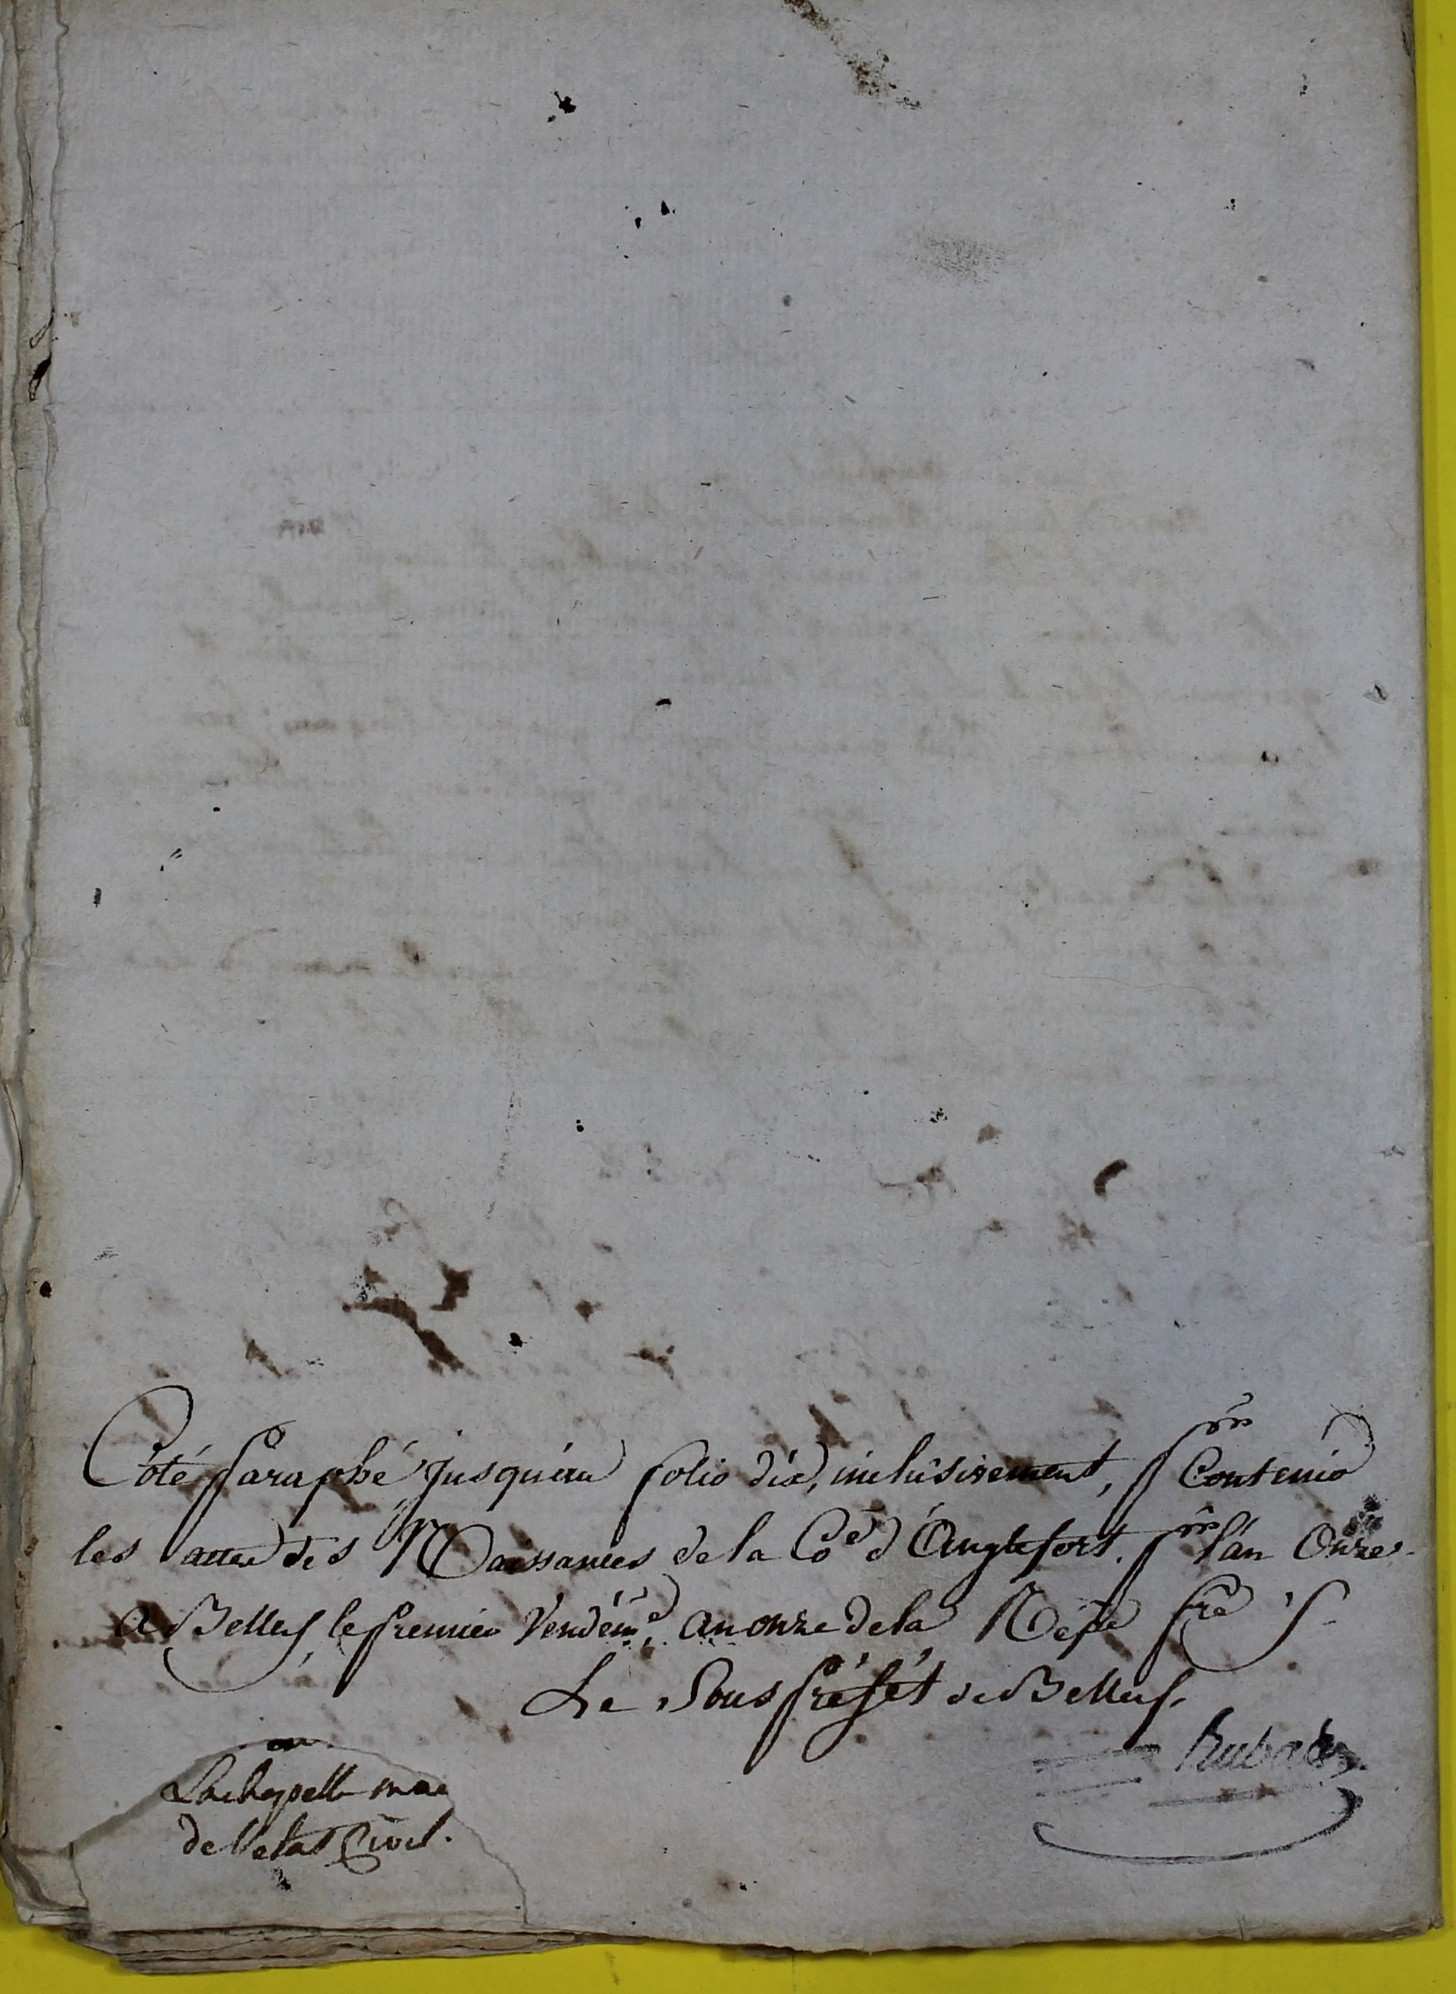 Coté paraphé, jusqu'au folio dix, inclusivement, pr Contenir
les actes des Naissances de la Coe d'Anglefort. pr l'an Onze
a Belley, le premier Vendémre an onze de la Répe fre
Le Sous préfét de Belley.
Rubat
Lachapelle
de l'etat Civil.